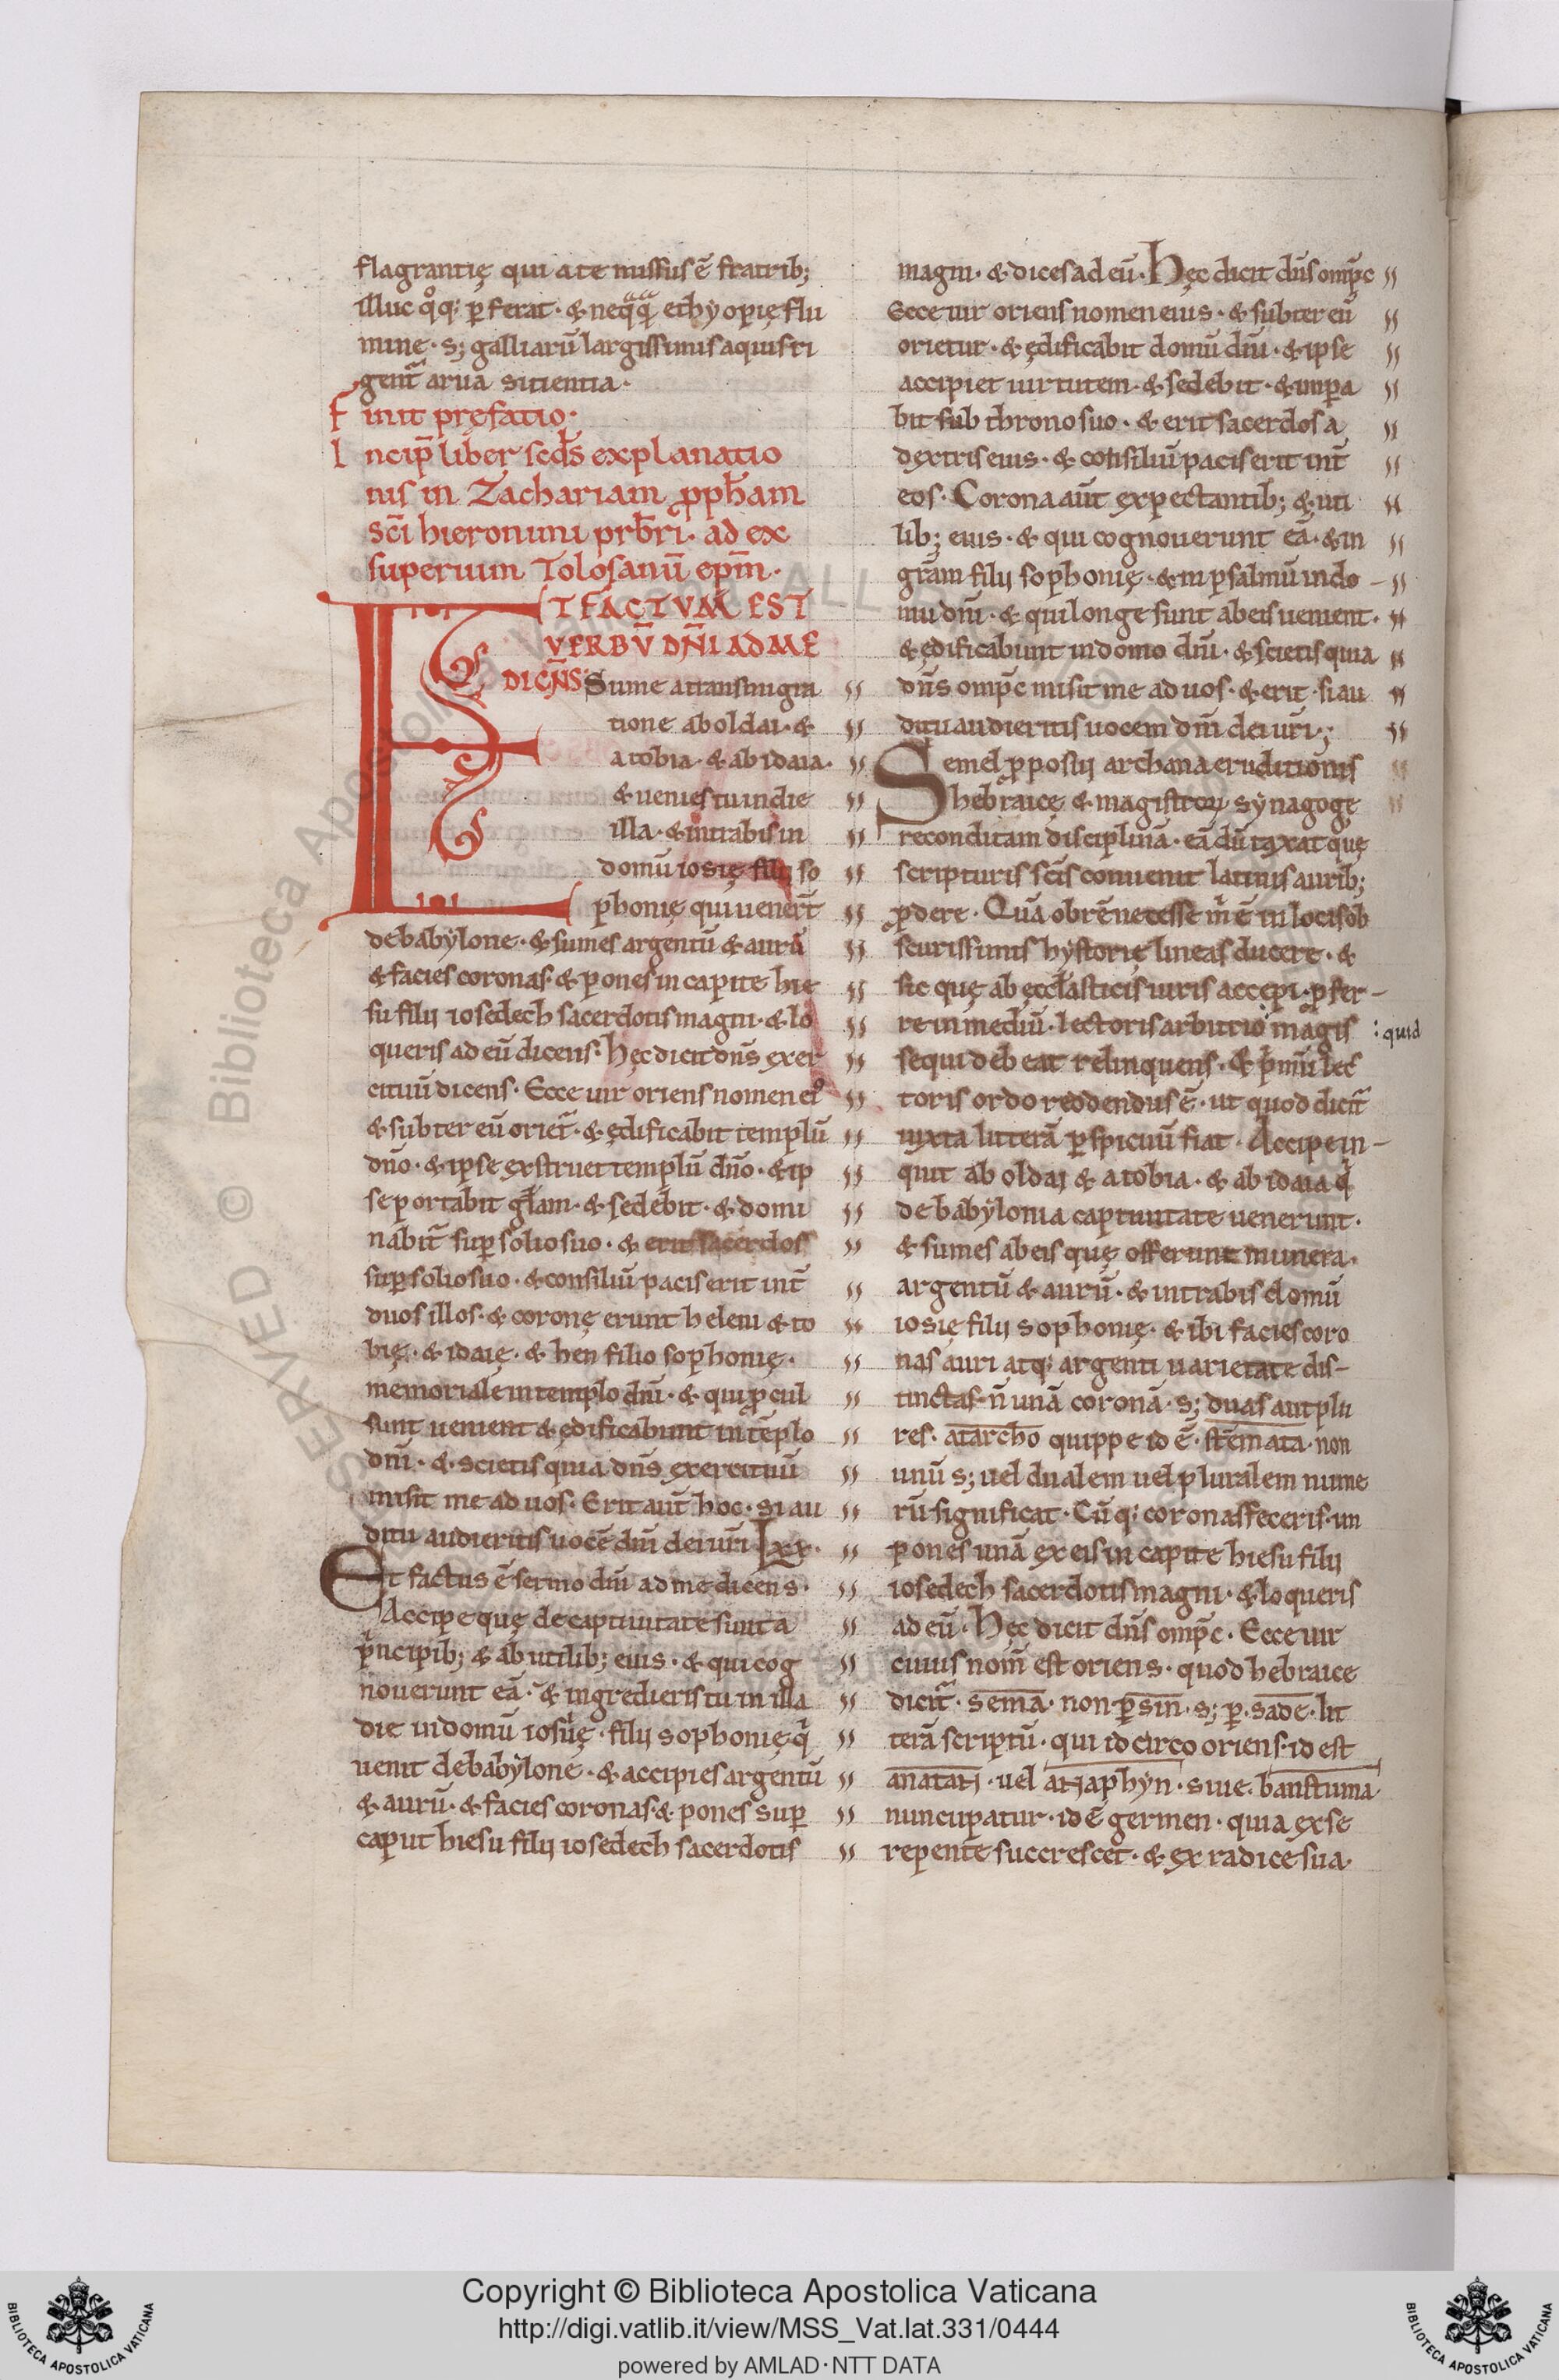 flagrantię qui a te missus ē fratrib;
illuc qͦq: ꝑferat · & neqͣqͣ ethyopię flu
mine · s; galliarū largissimis aquis ri
gent᷑ arua sitientia ·
Finit pręfatio ·
Incip̄ liber scd̄s explanatio
nis in Zachariam ꝓpħam
sc̄i hieronimi prb̄ri · ad ex
superium Tolosanū ep̄m ·
ET FACTVM EST
VERBV̄ DN̄I AD ME
DICN̄S Sume a transmigra
tione ab oldai · &
a tobia · & ab idaia ·
& uenies tu in die
illa · & intrabis in
domū iosię filij so
phonię qui uener̄t
de babylone · & sumes argentū & aurū
& facies coronas · & pones in capite hie
su filij iosedech sacerdotis magni · & lo
queris ad eū dicens · Hęc dicit dn̄s exer
cituū dicens · Ecce uir oriens nomen ei᷒
& subter eū oriet᷑ · & ędificabit templū
dn̄o · & ipse exstruet templū dn̄o · & ip
se portabit gl̄am · & sedebit · & domi
nabit᷑ suꝑ solio suo · & erit sacerdos
suꝑ solio suo · & consiliū pacis erit int̄
duos illos · & coronę erunt heleni & to
bię · & idaię · & hen filio sophonię ·
memoriale in templo dn̄i · & qui ꝓcul
sunt uenient & ędificabunt in tēplo
dn̄i · & scietis quia dn̄s exercituū
misit me ad uos · Erit aut̄ hoc · si au
ditu audieritis uocē dn̄i dei ur̄i · Lxx ·
Et factus ē sermo dn̄i ad me dicens ·
Accipe quę de captiuitate sunt a
pͥncipib; & ab utilib; eius · & qui cog
nouerunt eā · & ingredieris tu in illa
die in domū iosię · filij sophonię qͥ
uenit de babylone · & accipies argentū
& aurū · & facies coronas · & pones suꝑ
caput hiesu filij iosedech sacerdotis
magni · & dices ad eū · Hęc dicit dn̄s omp̄c
Ecce uir oriens nomen eius · & subter eū
orietur · & ędificabit domū dn̄i · & ipse
accipiet uirtutem · & sedebit · & imꝑa
bit sub throno suo · & erit sacerdos a
dextris eius · & consiliū pacis erit int̄
eos · Corona aut̄ expectantib; & uti
lib; eius · & qui cognouerunt eā · & in
gr̄am filij sophonię · & in psalmū in do-
mu dn̄i · & qui longe sunt ab eis uenient ·
& ędificabunt in domo dn̄i · & scietis quia
dn̄s omp̄c misit me ad uos · & erit · si au
ditu audieritis uocem dn̄i dei ur̄i ·;
Semel ꝓposui archana eruditionis
hebraicę & magistroꝝ synagogę
reconditam disciplinā · eā dū taxat quę
scripturis sc̄is conuenit latinis aurib;
ꝓdere · Quā ob rē necesse m̄ ē in locis ob
scurissimis hystorię lineas ducere · &
sic quę ab ęccl̄asticis uiris accepi · ꝓfer-
re in mediū · lectoris arbitrio magis
: quid
sequi debeat relinquens · & pͥmū lec
toris ordo reddendus ē · ut quod dicit᷑
iuxta litterā ꝑspicuū fiat · Accipe in-
quit ab oldaj & a tobia · & ab idaia qͥ
de babylonia captiuitate uenerunt ·
& sumes ab eis quę offerunt munera ·
argentū & aurū · & intrabis domū
iosię filij sophonię · & ibi facies coro
nas auri atq: argenti uarietate dis-
tinctas · n̄ unā coronā · s; duas aut plu
res · atarcho quippe id ē · stēmata · non
unū s; uel dualem uel pluralem nume
rū significat · Cūq: coronas feceris · im
pones unā ex eis in capite hiesu filij
iosedech sacerdotis magni · & loqueris
ad eū · Hęc dicit dn̄s omp̄c · Ecce uir
cuius nom̄ est oriens · quod hebraice
dicit᷑ · sema · non ꝑ sin · s; ꝑ · sade · lit
terā scriptū · qui idcirco oriens · id est
anataH · uel aHaphyn · siue · banstuma
nuncupatur · id ē germen · quia ex se
repente succrescet · & ex radice sua ·
Copyright © Biblioteca Apostolica Vaticana
http://digi.vatlib.it/view/MSS_Vat.lat.331/0444
powered by AMLAD · NTT DATA
BIBLIOTECA APOSTOLICA VATICANA
BIBLIOTECA APOSTOLICA VATICANA